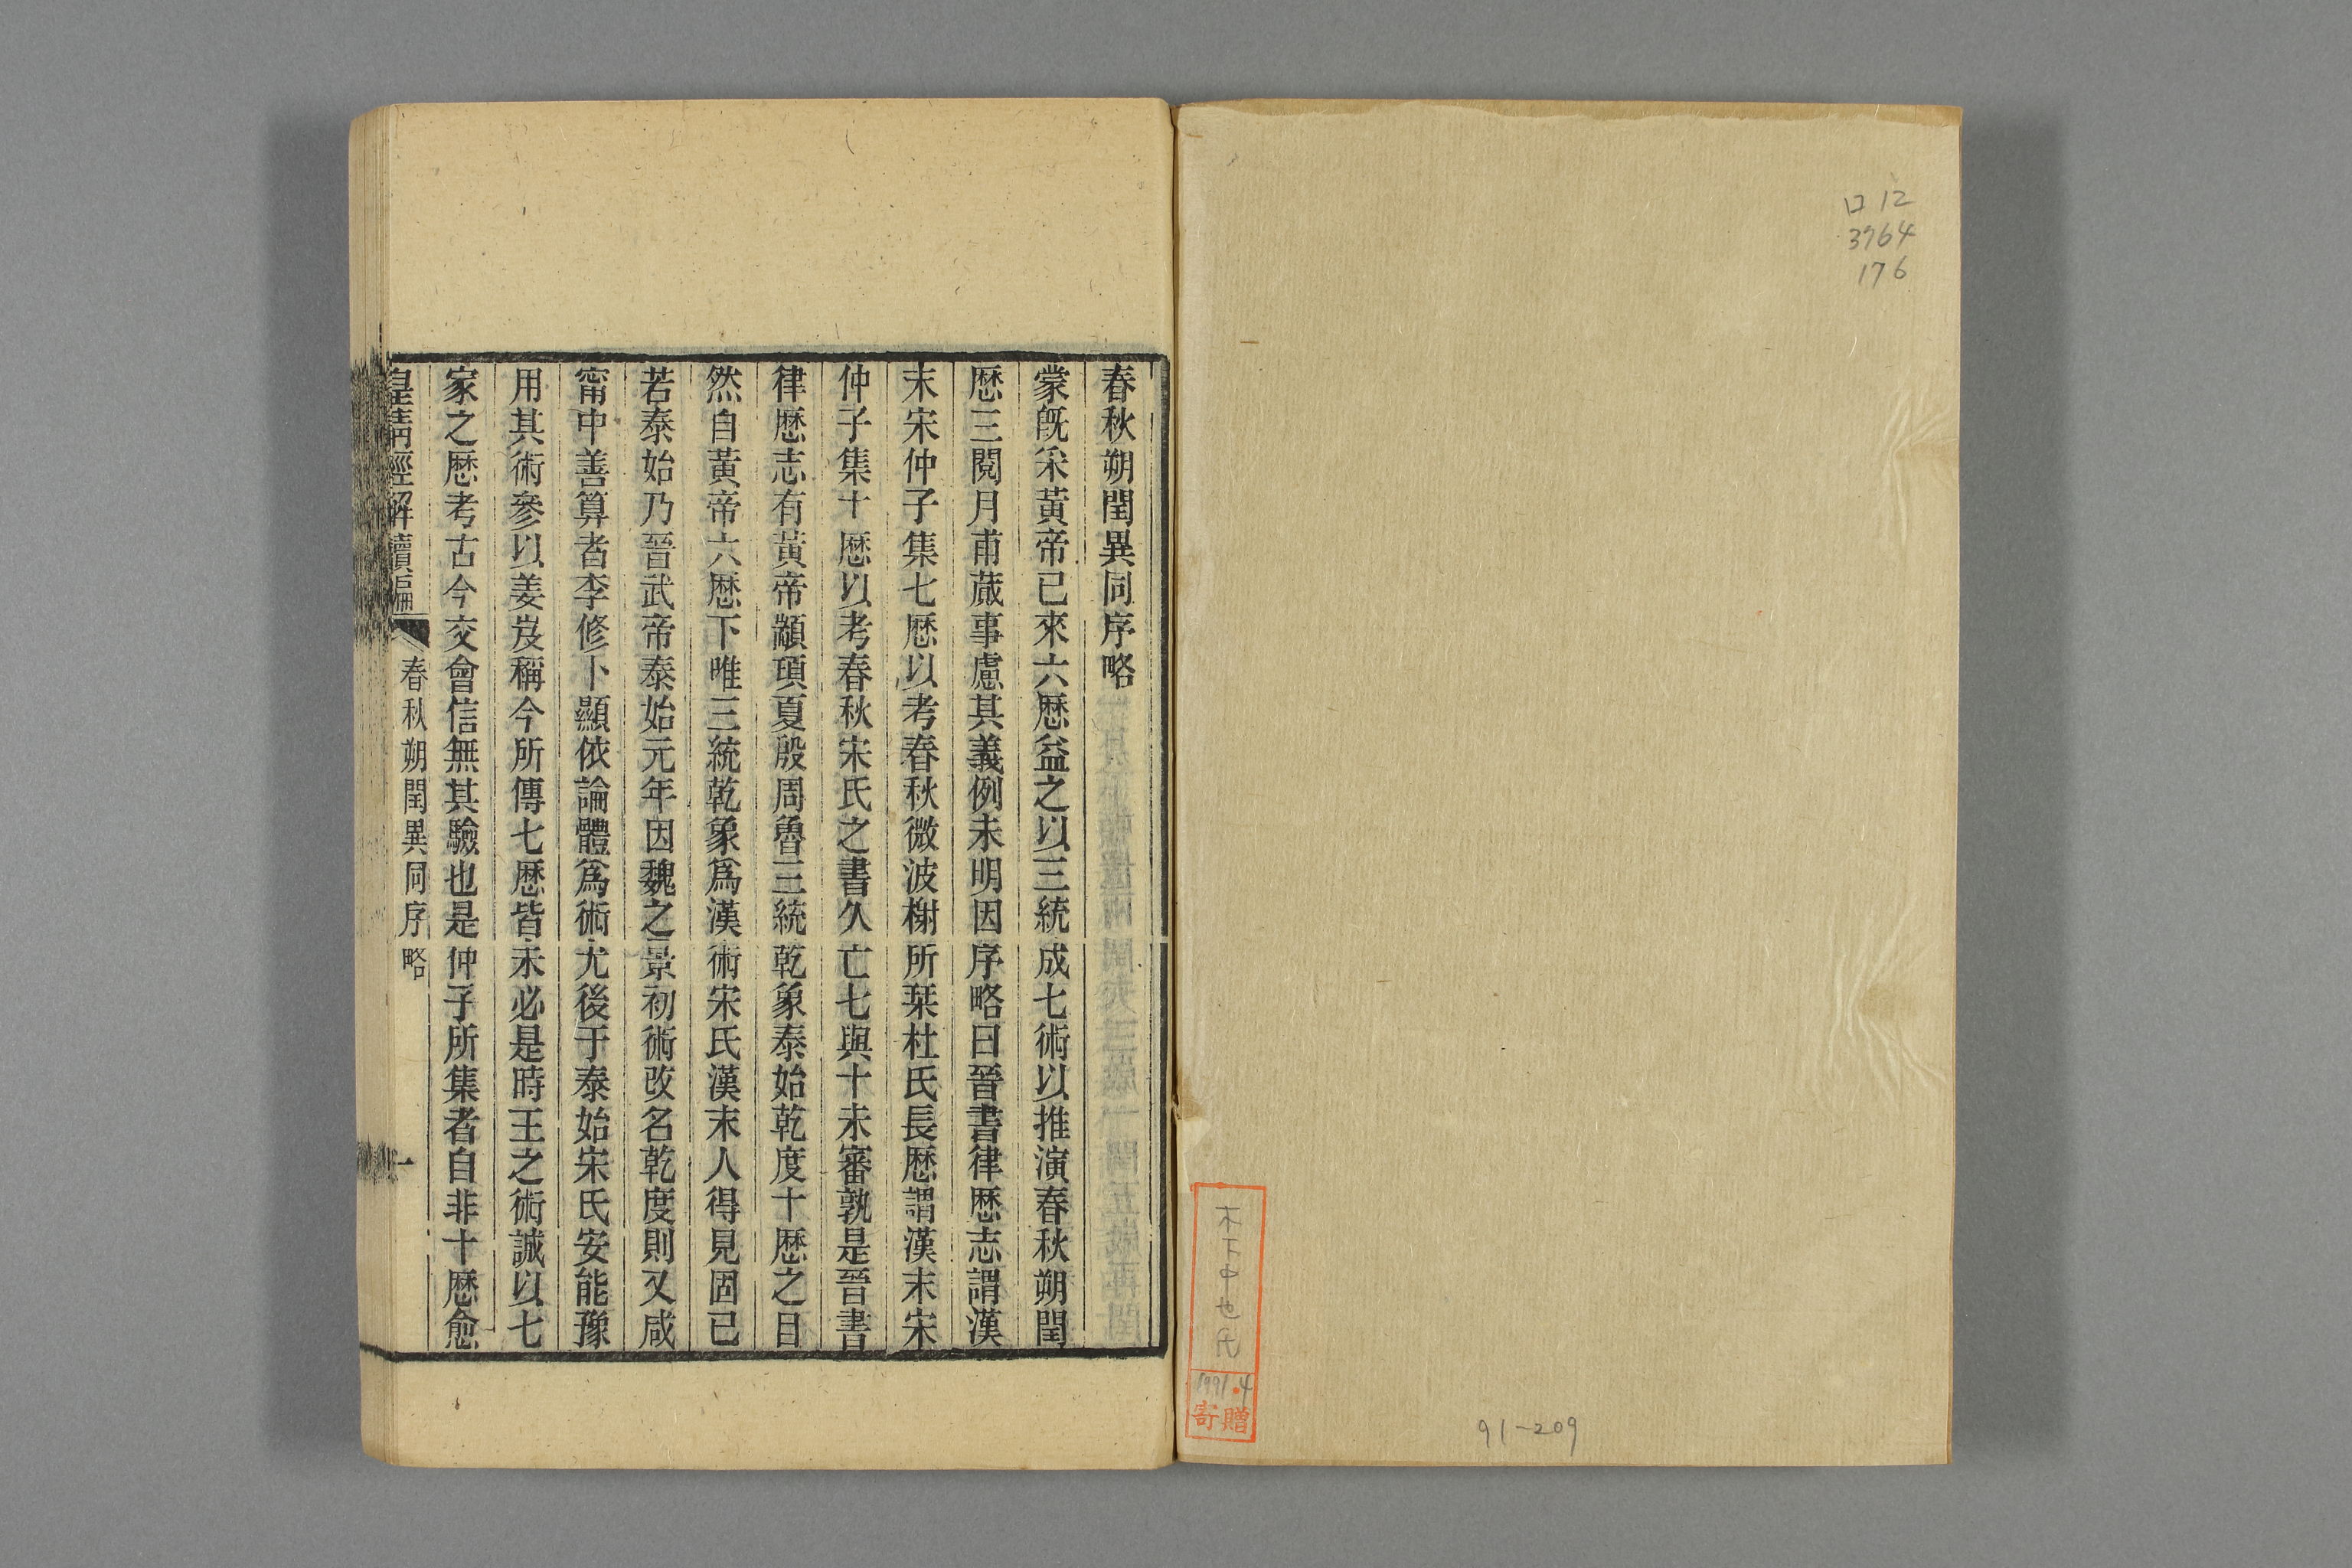 ロ12
3964
176
木下中也氏
1991.4
寄贈
91-209
春秋朔閏異同序略
蒙旣釆黃帝已來六厯益之以三統成七術以推演春秋朔閏
厯三閱月甫蕆事慮其義例未明因序略曰晉書律厯志謂漢
末宋仲子集七厯以考春秋微波榭所栞杜氏長厯謂漢末宋
仲子集十厯以考春秋宋氏之書久亡七與十未審孰是晉書
律厯志有黃帝顓頊夏殷周魯三統乾象泰始乾度十厯之目
然自黃帝六厯下唯三統乾象爲漢術宋氏漢末人得見固已
若泰始乃晉武帝泰始元年因魏之景初術改名乾度則又咸
甯中善算者李修卜顯依論體爲術尤後于泰始宋氏安能豫
用其術參以姜岌稱今所傳七厯皆未必是時王之術誠以七
家之厯考古今交會信無其驗也是仲子所集者自非十厯愈
皇淸經解續編
春秋朔閏異同序略
一